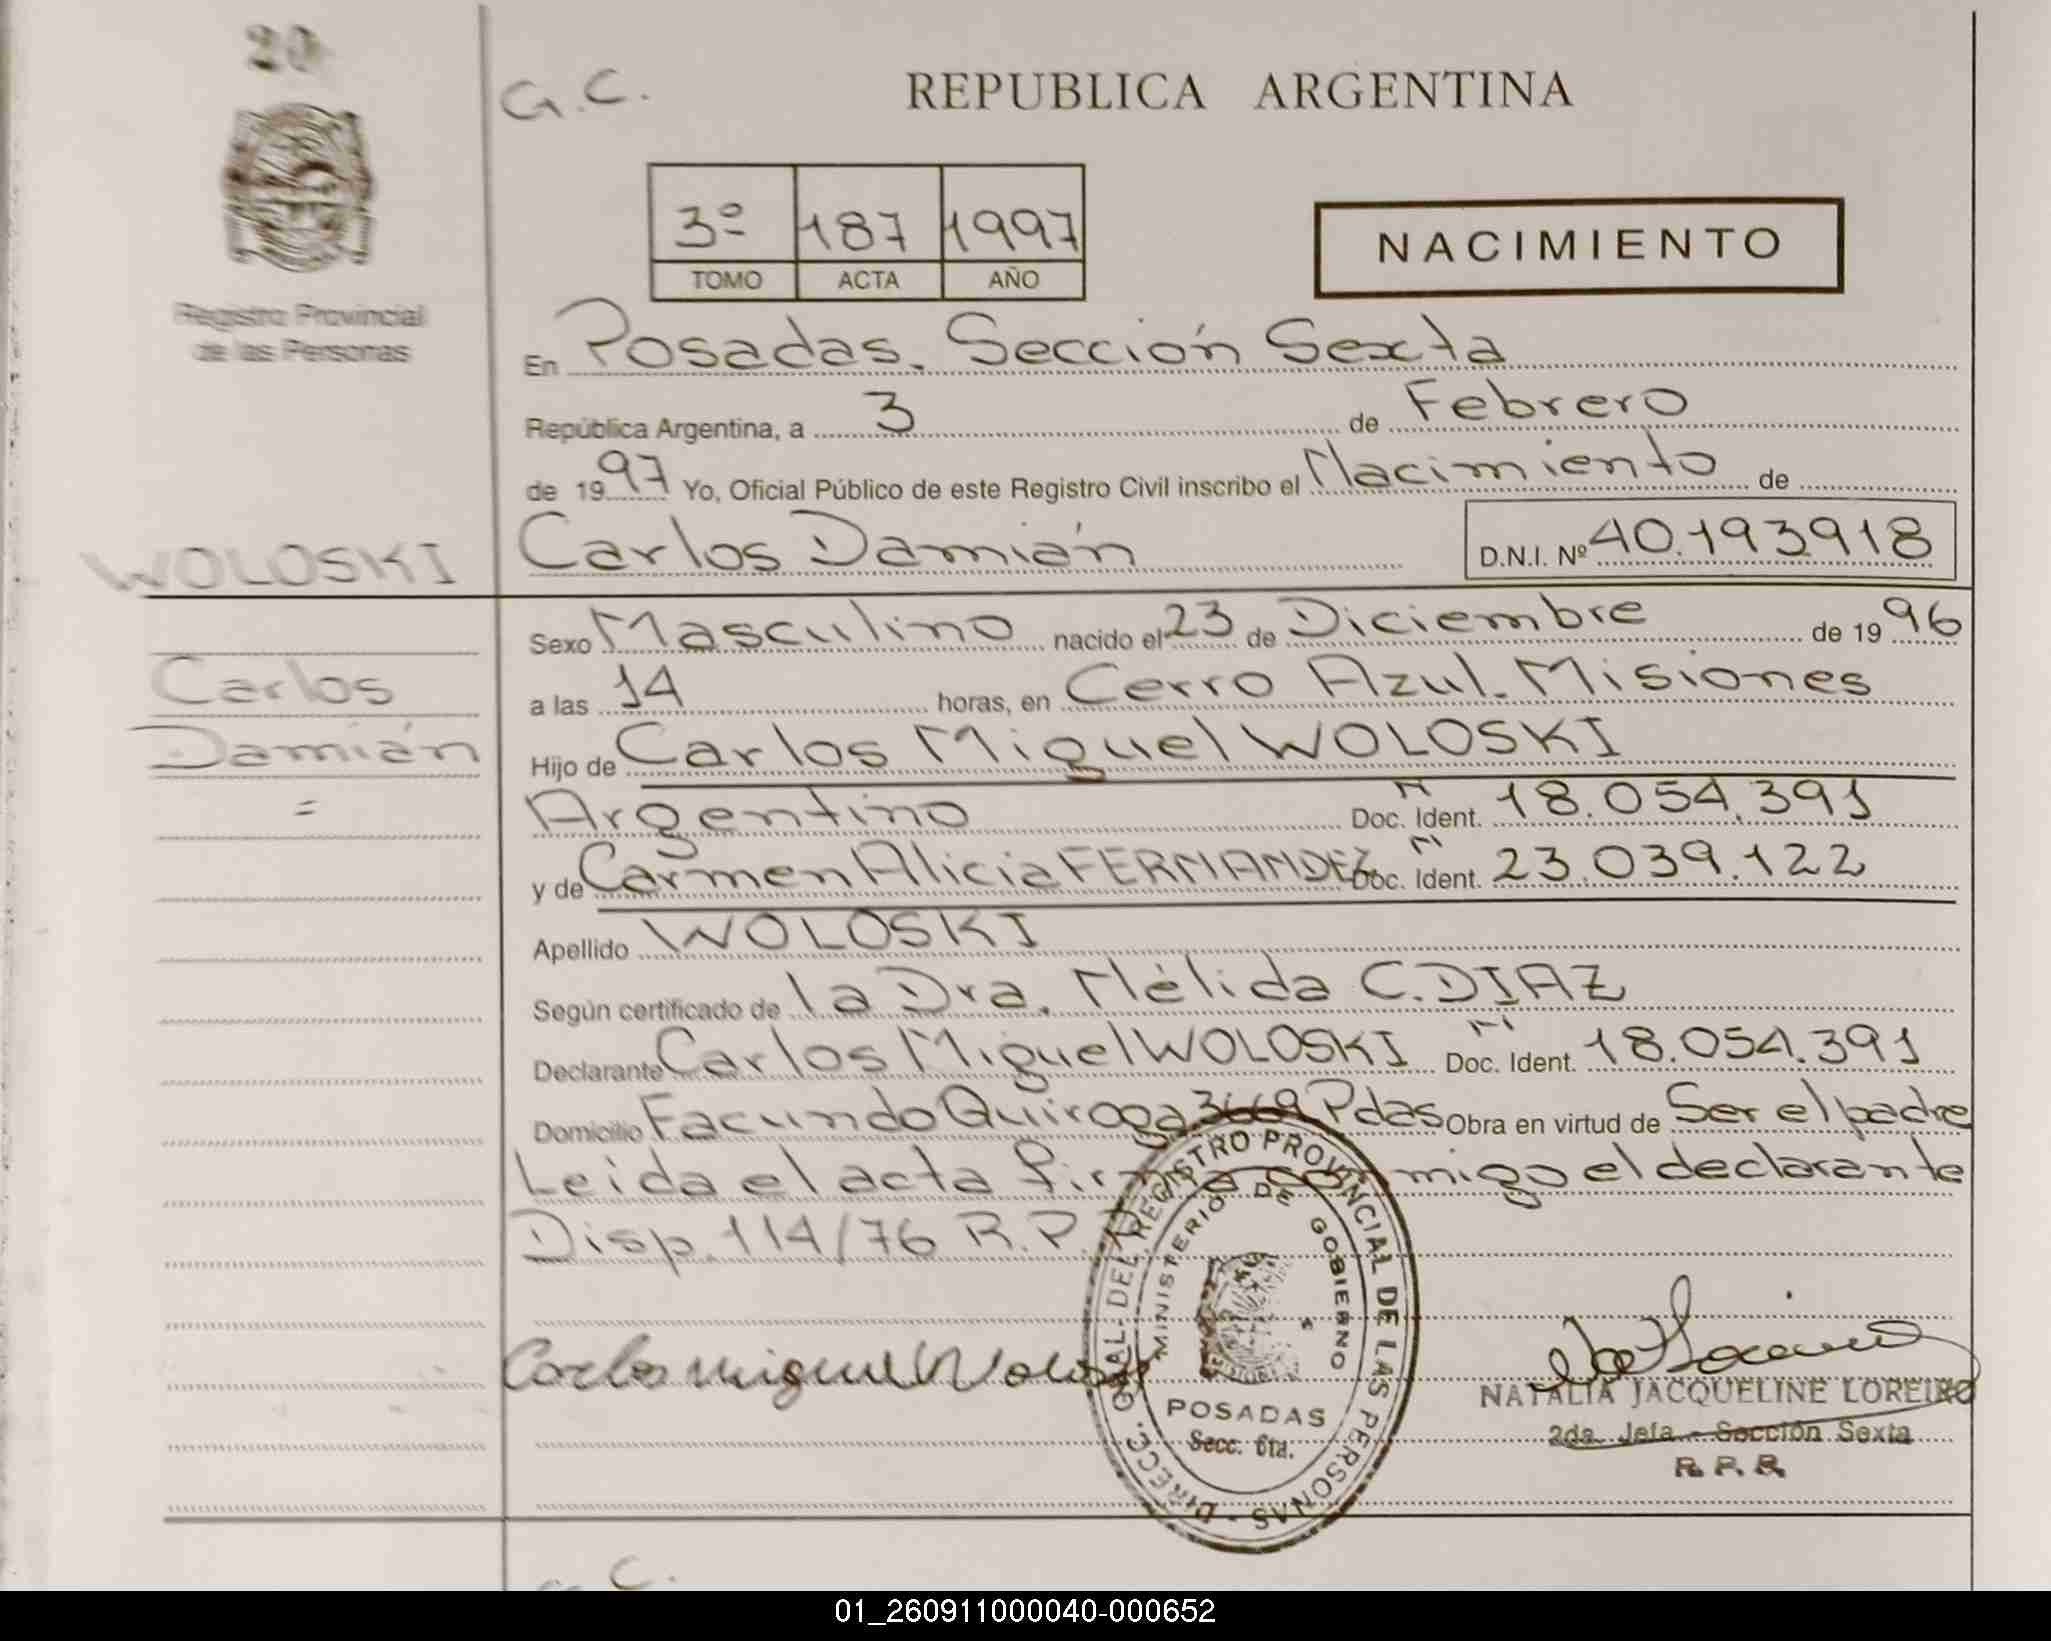 20
G.C.
REPUBLICA ARGENTINA
3º 187 1997
TOMO ACTA AÑO
NACIMIENTO
Registro Provincial
de las Personas
En Posadas. Sección Sexta
República Argentina, a 3 de Febrero
de 1997 Yo, Oficial Público de este Registro Civil inscribo el Nacimiento de
WOLOSKI
Carlos Damián D.N.I. Nº 40.193918
Sexo Masculino nacido el 23 de Diciembre de 1996
Carlos
a las 14 horas, en Cerro Azul. Misiones
Damián
Hijo de Carlos Miguel WOLOSKI
=
Argentino Doc. Ident. 18.054.391
y de Carmen Alicia FERNANDEZ Doc. Ident. 23.039.122
Apellido WOLOSKI
Según certificado de la Dra. Nélida C. DIAZ
Declarante Carlos Miguel WOLOSKI Doc. Ident. 18.054.391
Domicilio Facundo Quiroga Pdas Obra en virtud de Ser el padre
Leida el acta firma conmigo el declarante
Disp. 114/76 R.P.
Carlos Miguel Woloski
DIRECC. GRAL. DEL REGISTRO PROVINCIAL DE LAS PERSONAS -
MINISTERIO DE GOBIERNO
POSADAS
Secc. 6ta.
NATALIA JACQUELINE LOREIRO
2da. Jefa - Sección Sexta
R.P.P.
C.
01_260911000040-000652